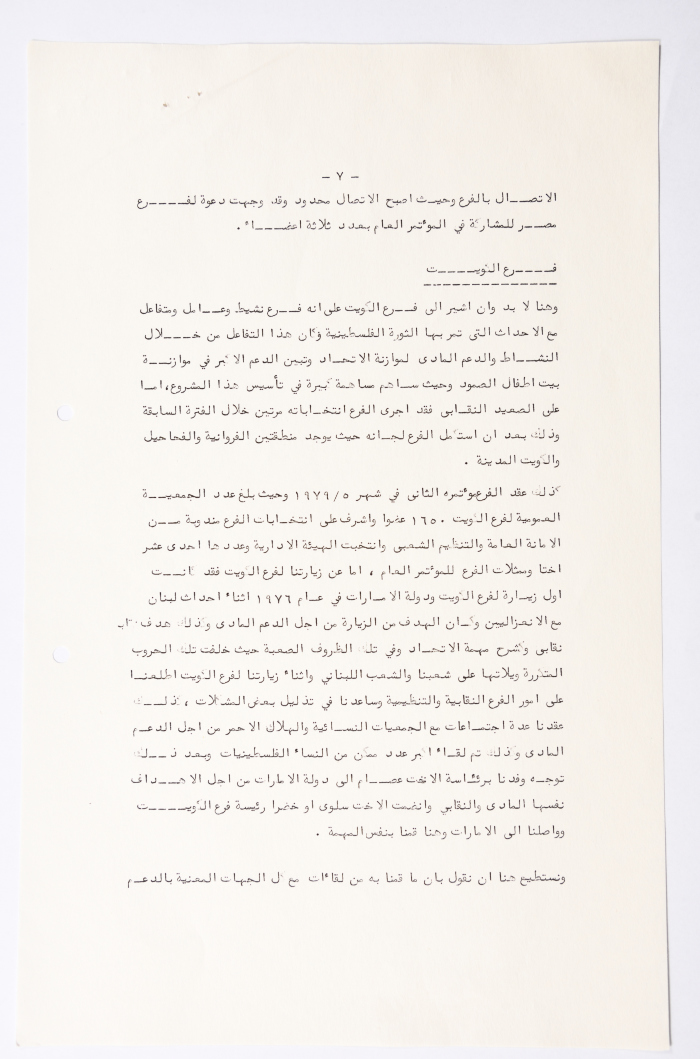 - ٧ -
الاتصـــال بالفرع وحيث اصبح الاتصال محدود وقد وجهت دعوة لفــــرع
مصـــر للمشاركة في الموءتمر العام بعدد ثلاثة اعضـــاء .
فــــرع الكويـــــت
وهنا لا بد وان اشير الى فــرع الكويت على انه فــرع نشيط وعــامل ومتفاعل
مع الاحداث التي تمر بها الثورة الفلسطينية وكان هذا التفاعل من خــــلال
النشـــاط والدعم المادى لموازنة الاتحــاد وتبين الدعم الاكبر في موازنـــة
بيت اطفال الصمود وحيث ســاهم مساهمة كبيرة في تأسيس هذا المشروع، امــا
على الصعيد النقــابي فقد اجرى الفرع انتخــاباته مرتين خلال الفترة السابقة
وذلك بعــد ان استكمل الفرع لجــانه حيث يوجد منطقتين الفروانية والفحاحيل
والكويت المدينة .
كذلك عقد الفرع موءتمره الثانى في شهر ١٩٧٩/٥ وحيث بلغ عدد الجمعيــة
العمومية لفرع الكويت ١٦٥٠ عضوا واشرف على انتخــابات الفرع مندوبة مــن
الامانة العامة والتنظيم الشعبى وانتخبت الهيئة الادارية وعددها احدى عشر
اختا وممثلات الفرع للموءتمر العــام ، اما عن زيارتنا لفرع الكويت فقد كانــت
اول زيــارة لفرع الكويت ودولة الامــارات في عــام ١٩٧٦ اثناء احداث لبنان
مع الانعزاليين وكــان الهدف من الزيارة من اجل الدعم المادى وكذلك هدف
نقابى وكشرح مهمة الاتحــاد وفي تلك الظروف الصعبة حيث خلفت تلك الحروب
المتكررة ويلاتها على شعبنا والشعب اللبناني واثناء زيارتنا لفرع الكويت اطلعنــا
على امور الفرع النقابية والتنظيمية وساعدنا في تذليل بعض المشكلات ، كذلــك
عقدنا عدة اجتمــاعات مع الجمعيات النســائية والهلاك الاحمر من اجل الدعــم
المادى وكذلك تم لقــاء اكبر عدد ممكن من النساء الفلسطينيات وبعد ذلــك
توجــه وفدنا برئــاسة الاخت عصــام الى دولة الامارات من اجل الاهــداف
نفسها المادى والنقابي وانضمت الاخت سلوى ابو خضرا رئيسة فرع الكويـــت
وواصلنا الى الامارات وهنا قمنا بنفس المهمة .
ونستطيع هنا ان نقول بان ما قمنا به من لقاءات مع كل الجهات المعنية بالدعــم